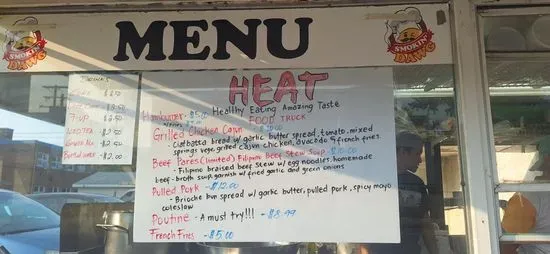 SMOKIN' DAWG
MENU
SMOKIN' DAWG
HEAT
Healthy Eating Amazing Taste
FOOD TRUCK
Hamburger - $5.00
Grilled Chicken Cajun
- Ciabatta bread w/ garlic butter spread, tomato, mixed
springs vege, grilled cajun chicken, avocado & french fries.
Beef Pares (limited) Filipino Beef Stew Soup - $10.00
- Filipino braised beef stew w/ egg noodles, homemade
beef-broth soup garnish w/ fried garlic and green onions
Pulled Pork - $12.00
- Brioche bun spread w/ garlic butter, pulled pork, spicy mayo
coleslaw
Poutine - A must try!!! - $8.99
French Fries - $5.00
7-UP
$2.50
$2.50
$2.50
$2.00